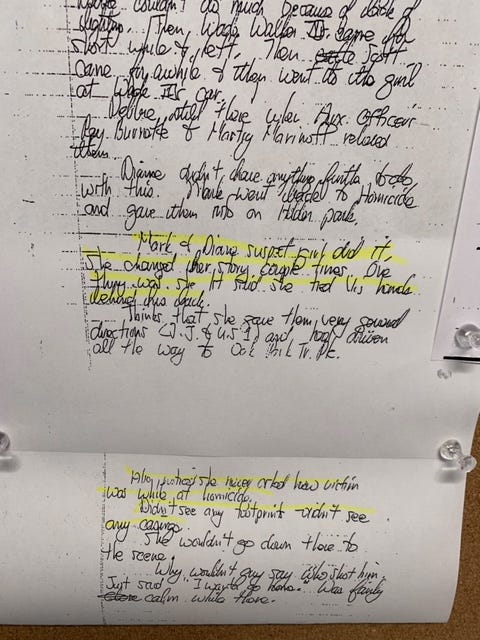 couldn't do much because of lack of
Then, Wade Walker III came for
short while & left. Then Scott
came for awhile & they went to the girl
at Wade III's car.
Debbie still there when Aux. Officers
Ray Burnette & Marty relieved
them.
Dianne didn't have anything further to do
with this. Mark went back to Homicide
and gave them info on Hidden park.
Mark & Diane suspect girl did it,
She changed her story couple times. One
thing was she 1st said she tied V's hands
behind his back.
Thinks that she gave them very good
directions (J.J. & U.S 1) and had driven
all the way to Tr. Pk.
Also, noticed she never asked how victim
was while at homicide.
Didn't see any footprints - didn't see
any casings
She wouldn't go down there to
the scene.
Why wouldn't guy say who shot him.
Just said I wanta go home. Was fairly
calm while there.